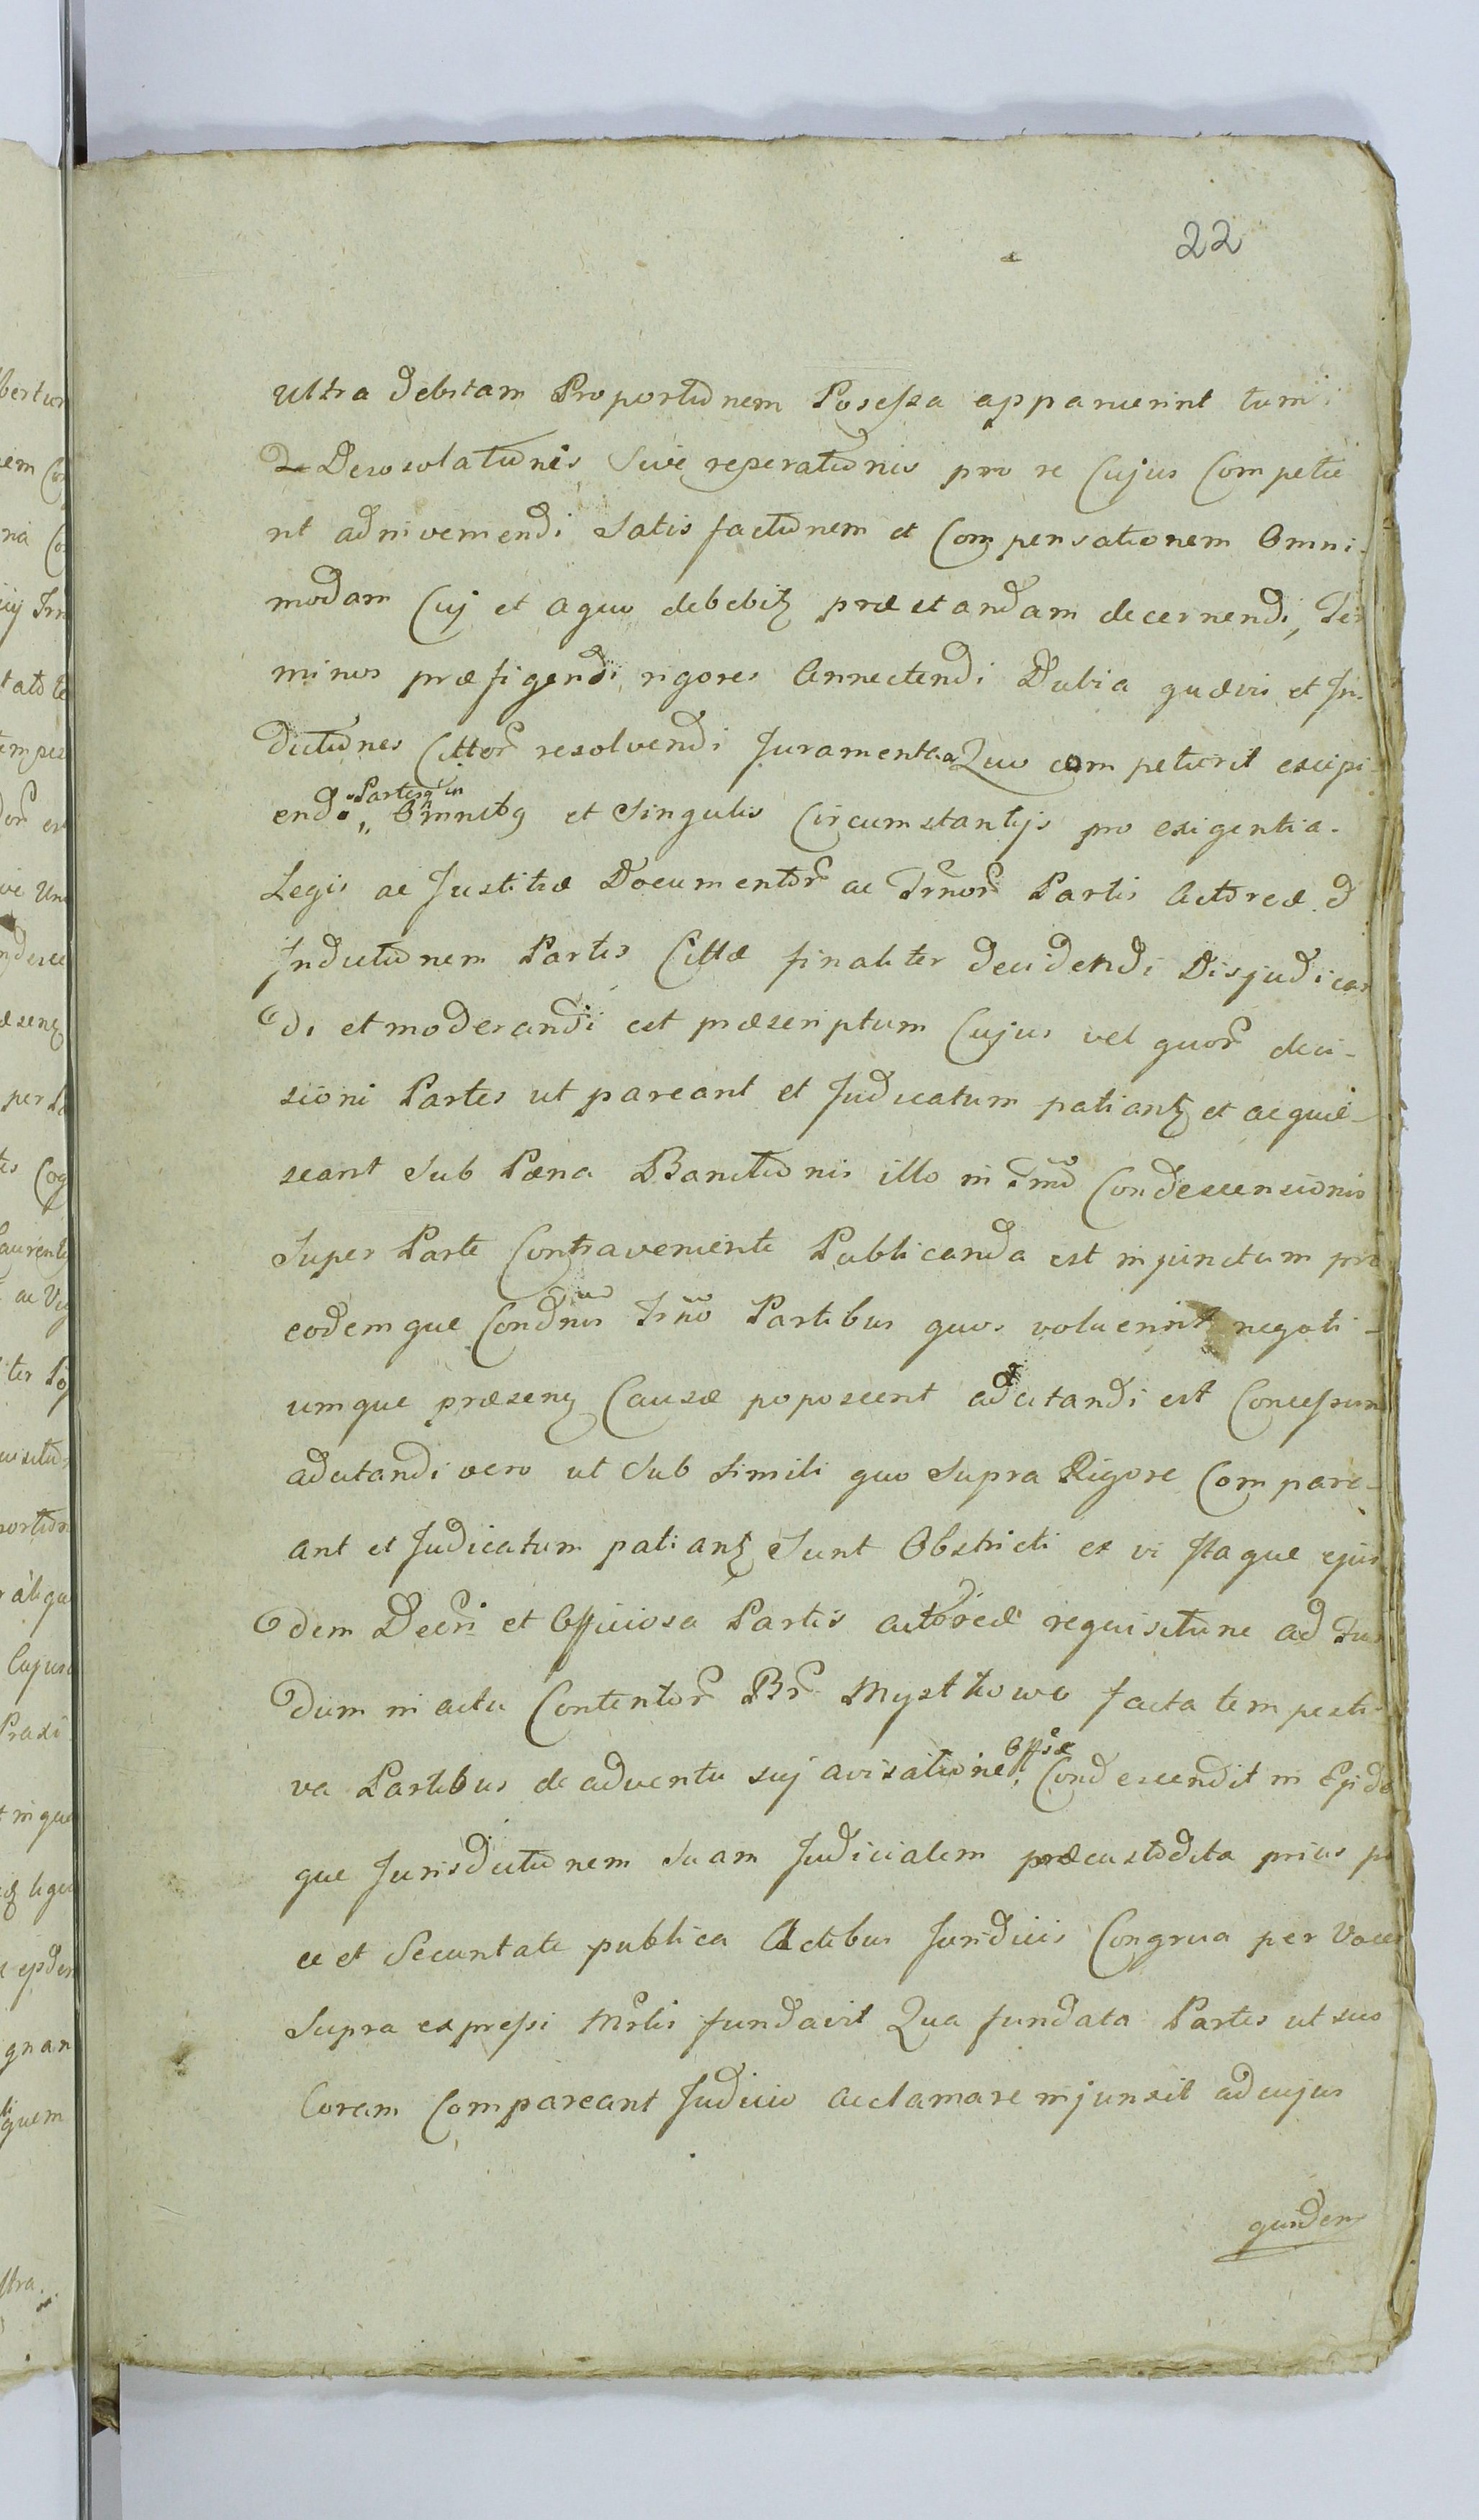 22
ultra debitam Proportionem Posessa apparuerint tum
de Desolationis sive reperationis pro re Cujus Competie
nt adnivemendi satis factionem et Compensationem Omni-
modam Cuj et a quo debebitz præstandam decernendi, Ter
minos præfigendi, rigores Annectendi Dubia quævis et In-
ductiones Cittor resolvendi Juramenta Quo competierit excipi-
endo Partesq in Omnibq et Singulis Circumstantijs pro exigentia
Legis ac Justitiæ Documentor ac Trnor Partis Actoreæ &
Inductionem Partis Cittæ finaliter decidendi Disjudican
di et moderandi est præscriptum Cujus vel quor deci-
sioni Partes ut pareant et Judicatum patiantz et acquie-
scant Sub Pæna Bannitionis illo in Trno Condescensionis
Super Parte Contraveniente Publicanda est injunctum pro
eodemque Condnis Trno Partibus quos voluerint negoti-
umque præsenz Causæ poposcerit adcitandi est Concessum
adcitandi vero ut Sub Simili quo Supra Rigore Compare-
ant et Judicatum patiantz Sunt Obstricti ex vi Itaque ejus
dem Decri et Officiosa Partis actoreæ requisitione ad Fun
dum in actu Contentor Br Mysthowo facta tempesti-
va Partibus de adventu suj avisatione Offsæ Condescendit in Ejsde
que Jurisdictionem Suam Judicialem præcustodita prius pa
ce et Securitate publica Actibus Juridicis Congrua per Vocem
Supra expressi Mrlis fundavit Qua fundata Partes ut suo
Coram Compareant Judicio acclamare injunxit ad cujus
quidem